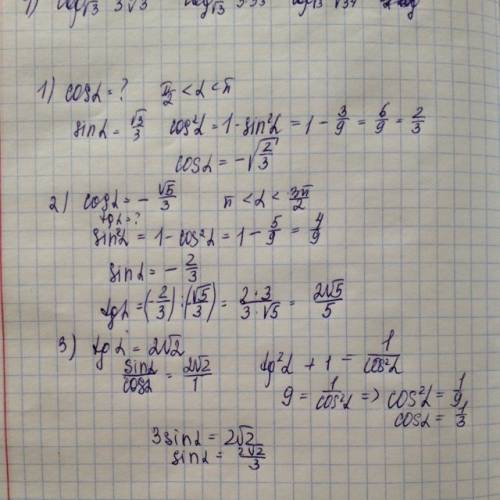 1) cosα = ? π/2 < α < π
sinα = √3/3 cos²α = 1 - sin²α = 1 - 3/9 = 6/9 = 2/3
cosα = -√(2/3)
2) cosα = - √5/3 π < α < 3π/2
tgα = ?
sin²α = 1 - cos²α = 1 - 5/9 = 4/9
sinα = - 2/3
tgα = (-2/3) : (√5/3) = 2·3/3·√5 = 2√5/5
3) tgα = 2√2
sinα/cosα = 2√2/1 tg²α + 1 = 1/cos²α
9 = 1/cos²α => cos²α = 1/9
cosα = 1/3
3sinα = 2√2
sinα = 2√2/3